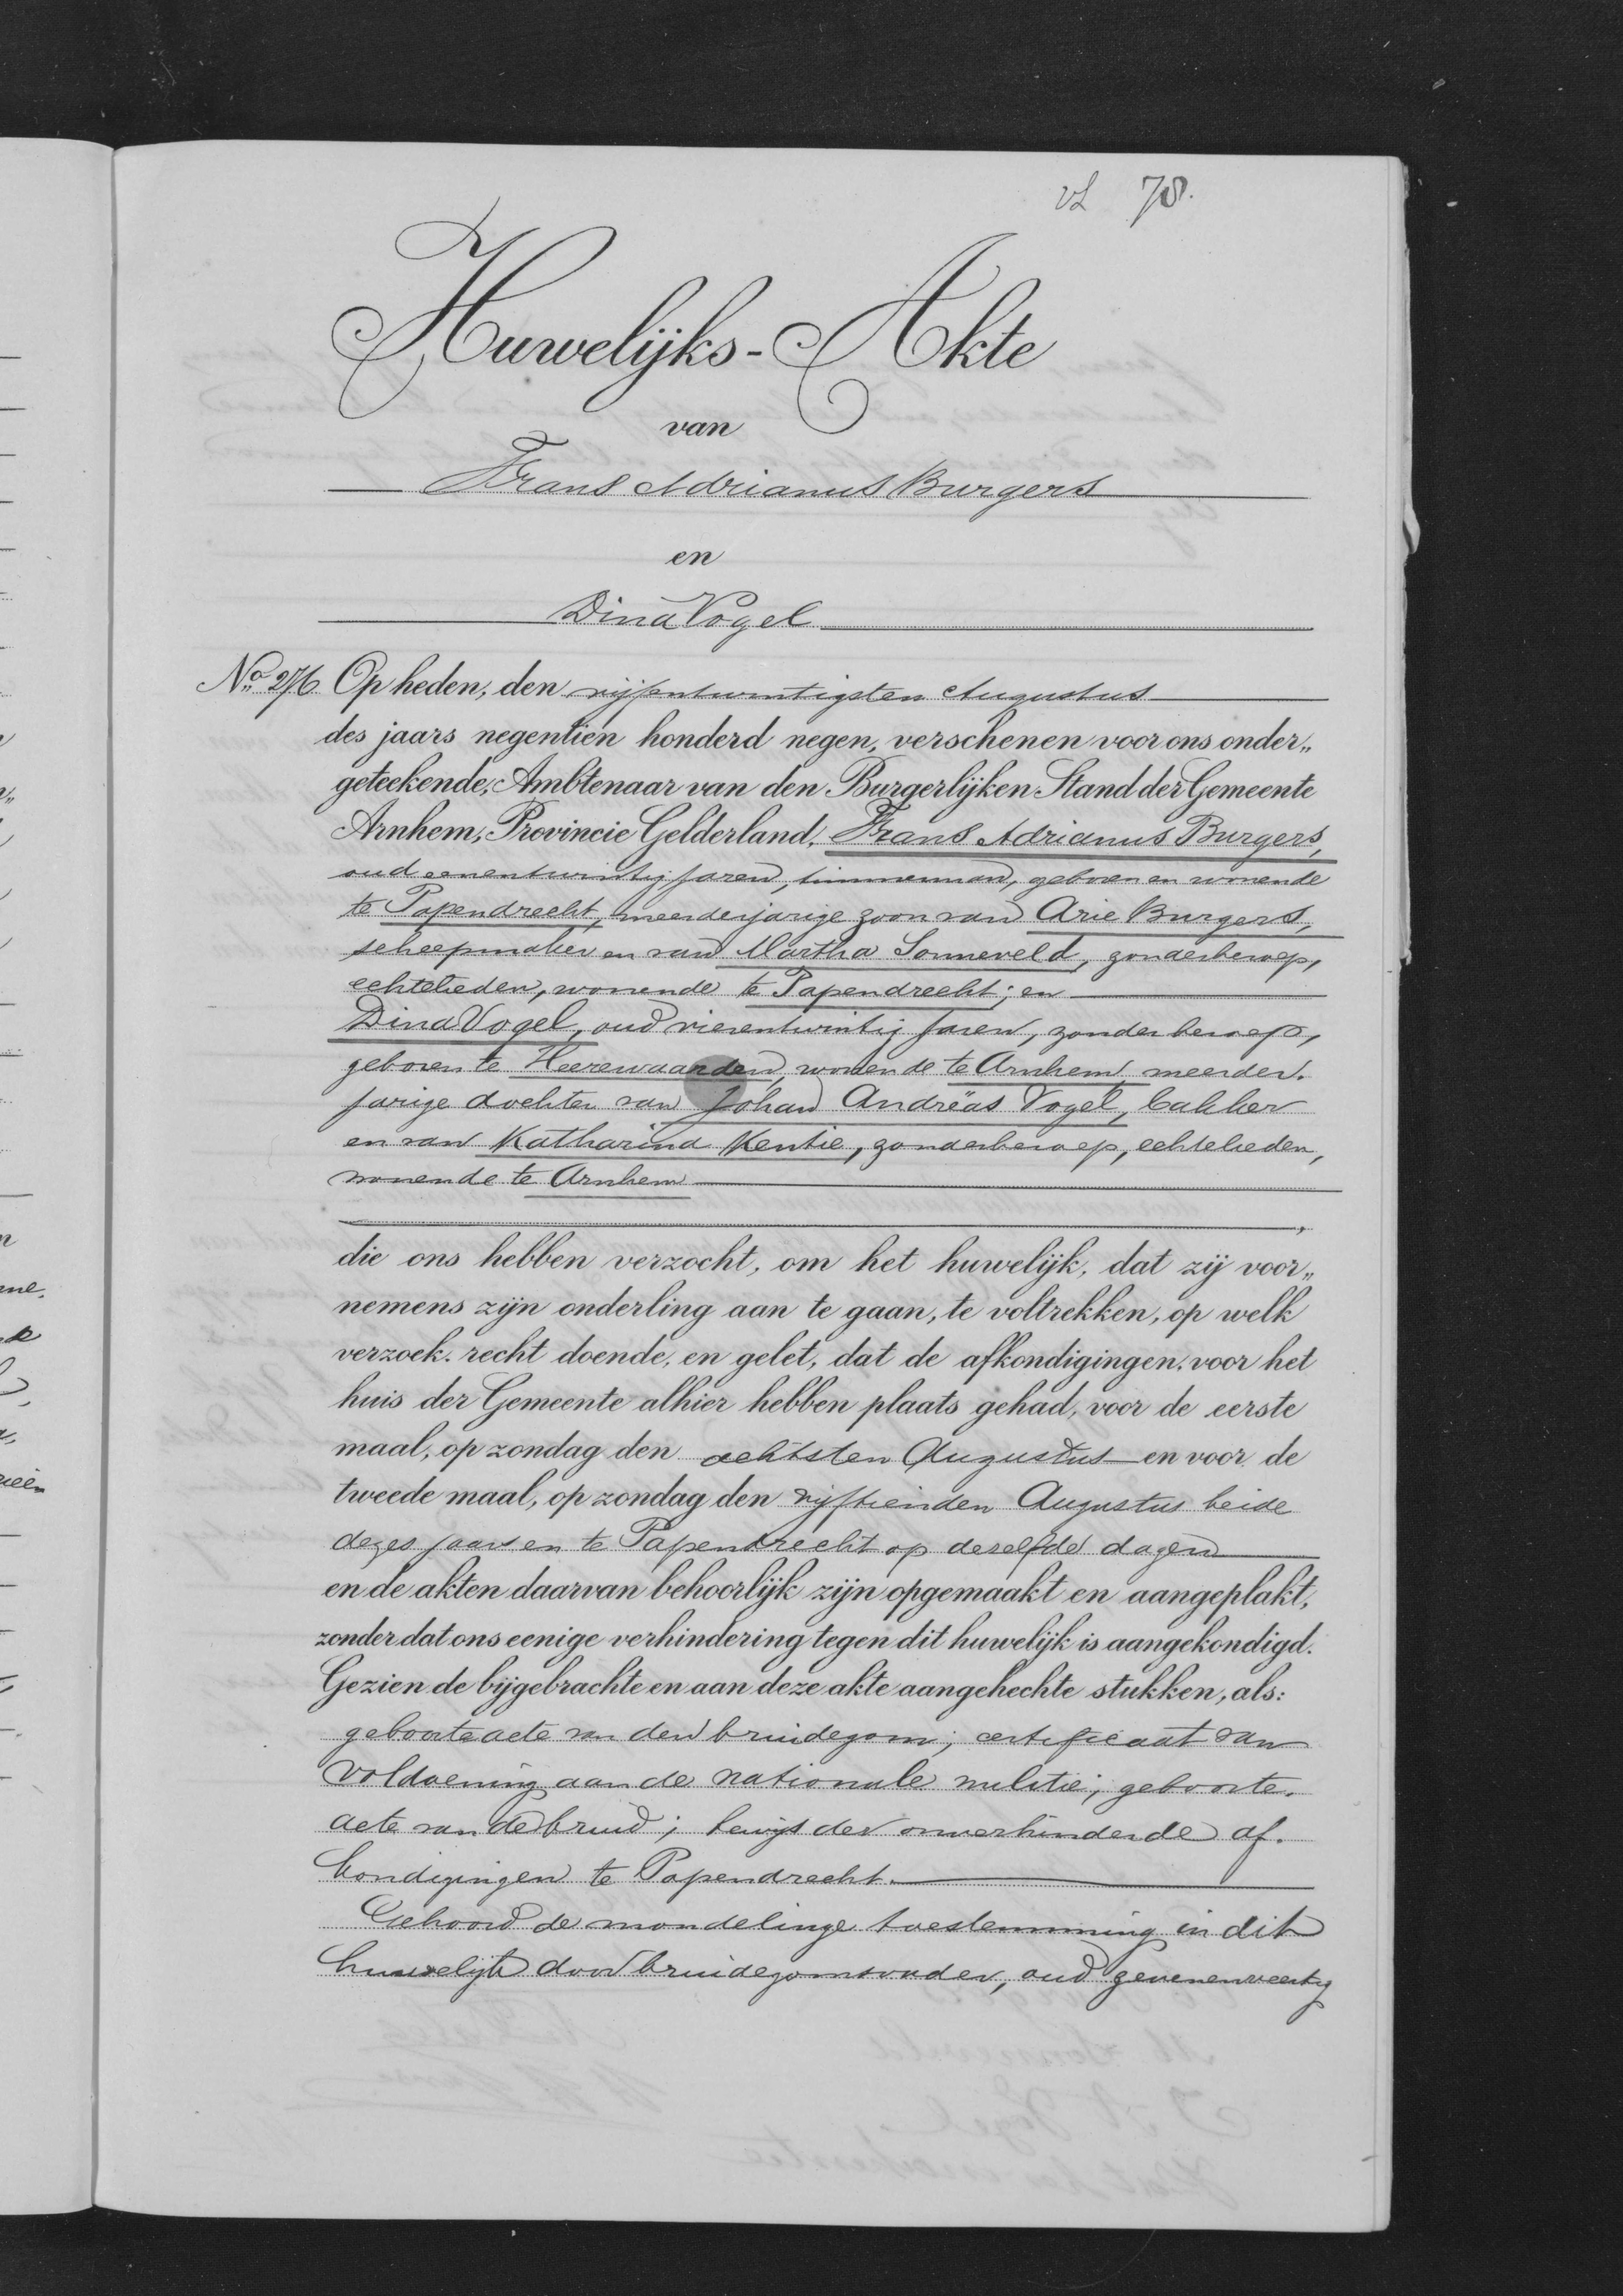 vL 78.
Huwelijks-Akte
van
Frans Adrianus Burgers
en
Dina Vogel
No. 276 Op heden, den vijfentwintigsten Augustus
des jaars negentien honderd negen, verschenen voor ons onder„
geteekende, Ambtenaar van den Burgerlijken Stand der Gemeente
Arnhem, Provincie Gelderland, Frans Adrianus Burgers,
oud eenentwintig jaren, timmerman, geboren en wonende
te Papendrecht, meerderjarige zoon van Arie Burgers,
scheepmaker en van Martha Sonneveld, zonder beroep,
echtelieden, wonende te Papendrecht; en
Dina Vogel, oud vierentwintig jaren, zonder beroep,
geboren te Heerewaarden, wonende te Arnhem, meerder.
jarige dochter van Johan Andreas Vogel, bakker
en van Katharina Kentie, zonder beroep, echtelieden,
wonende te Arnhem
die ons hebben verzocht, om het huwelijk, dat zij voor„
nemens zijn onderling aan te gaan, te voltrekken, op welk
verzoek. recht doende, en gelet, dat de afkondigingen, voor het
huis der Gemeente alhier hebben plaats gehad, voor de eerste
maal, op zondag den achtsten Augustus en voor de
tweede maal, op zondag den vijftienden Augustus beide
dezes jaars en te Papendrecht op dezelfde dagen
en de akten daarvan behoorlijk zijn opgemaakt en aangeplakt,
zonder dat ons eenige verhindering tegen dit huwelijk is aangekondigd.
Gezien de bijgebrachte en aan deze akte aangehechte stukken, als:
geboorteacte van den bruidegom; certificaat van
voldoening aan de nationale militie; geboorte.
acte van de bruid; bewijs der onverhinderde af.
kondigingen te Papendrecht.
Gehoord de mondelinge toestemming in dit
huwelijk door bruidegomsvader, oud zevenenveertig